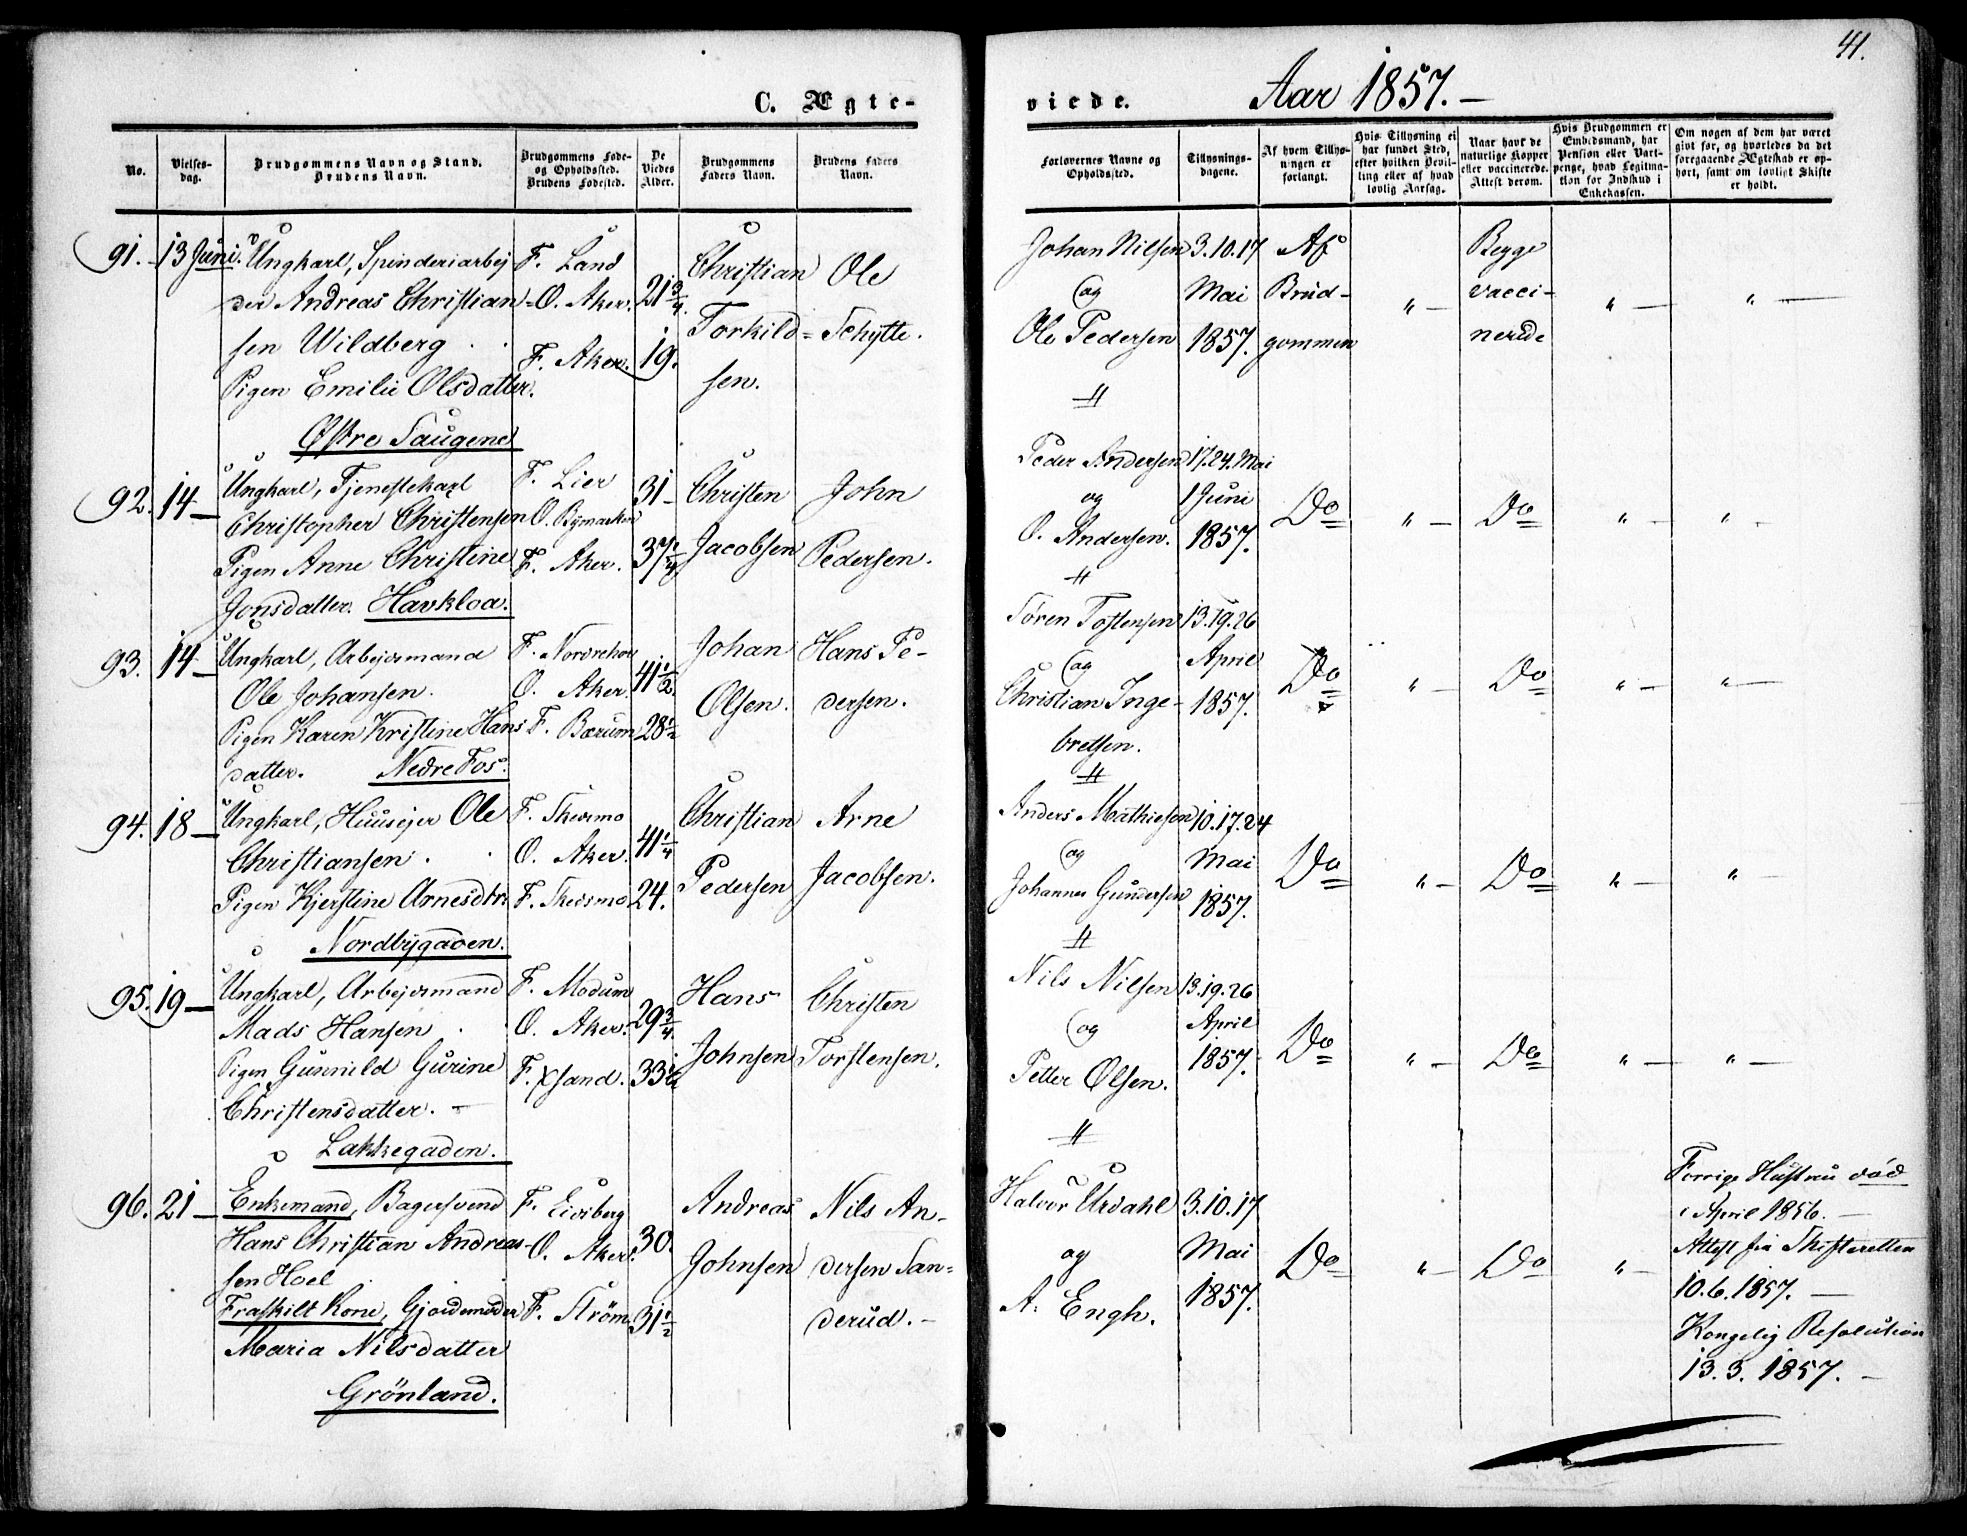 41.
C. Ægte-
viede.
Aar 1857.-
No.
Vielses-
dag.
Brudgommens Navn og Stand.
Brudens Navn.
Brudgommens Føde-
og Opholdssted.
Brudens Fødested.
De
Viedes
Alder.
Brudgommens
Faders Navn.
Brudens Faders
Navn.
Forlovernes Navne og
Opholdssted.
Tillysnings-
dagene.
Af hvem Tillys-
ningen er
forlangt.
Hvis Tillysning ei
har fundet Sted,
efter hvilken Bevil-
ling eller af hvad
lovlig Aarsag.
Naar havt de
naturlige Kopper
eller vaccinerede.
Attest derom.
Hvis Brudgommen er
Embedsmand, har
Pension eller Vart-
penge, hvad Legitma-
tion for Indskud i
Enkekassen.
Om nogen af dem har været
gift før, og hvorledes da det
foregaaende Ægteskab er op-
hørt, samt om lovligt Skifte
er holdt.
91. 13 Juni. Ungkarl, Spinderiarbej
der Andreas Christian-
sen Wildberg
Pigen Emilie Olsdatter.
Østre Saugene
F. Land
O. Aker.
F. Aker.
21 3/4.
19.
Christian
Torkild=
sen.
Ole
Schytte.
Johan Nilsen
og
Ole Pedersen
3.10.17
Mai
1857.
Af
Brud-
gommen
" -
Begge
vacci-
nerede
" -
" -
92. 14 - Ungkarl, Tjenestekarl
Christopher Christensen
Pigen Anne Christine
Jonsdatter. Havkloa.
F. Lier
O. Bymarken
F. Aker.
31 -
37 1/4
Christen
Jacobsen
John
Pedersen.
Peder Andersen
og
O. Andersen.
17.24. Mai
1 Juni
1857.
Do
" -
Do
" -
" -
93. 14 - Ungkarl, Arbejdsmand
Ole Johansen.
Pigen Karen Kristine Hans
datter. Nedre Fos.
F. Norderhov
O. Aker.
F. Bærum
41 1/2.
28 1/2
Johan
Olsen.
Hans Pe-
dersen.
Søren Tostensen
og
Christian Inge-
bretsen.
13.19.26
April
1857.
Do
" -
Do
" -
" -
94. 18 - Ungkarl, Huusejer Ole
Christiansen.
Pigen Kjerstine Arnesdtr.
Nordbygaden.
F. Skedsmo
O. Aker.
F. Skedsmo.
41 1/4
24.
Christian
Pedersen
Arne
Jacobsen.
Anders Mathiesen
og
Johannes Gundersen
10.17.24
Mai
1857.
Do
" -
Do
" -
" -
95. 19 - Ungkarl, Arbejdsmand
Mads Hansen
Pigen Gunnild Gurine
Christensdatter. -
Lakkegaden.
F. Modum
O. Aker.
F. Xsand.
29 3/4.
33 1/2
Hans
Johnsen
Christen
Torstensen.
Nils Nilsen
og
Petter Olsen.
13.19.26
April
1857.
Do
" -
Do
" -
" -
96. 21 - Enkemand, Bagersvend
Hans Christian Andreas-
sen Hoel
Fraskilt Kone, Gjordemoder
Maria Nilsdatter
Grönland.
F. Eidsberg
O. Aker.
F. Ström
30.
31 1/2
Andreas
Johnsen
Nils An-
dersen San=
derud. -
Halvor Urdahl
og
A. Engh.
3.10.17
Mai
1857.
Do
" -
Do
" -
Forrige Hustru död
i April 1856. -
Attest fra Skifteretten
10.6.1857. -
Kongelig Resolution
13.3.1857. -